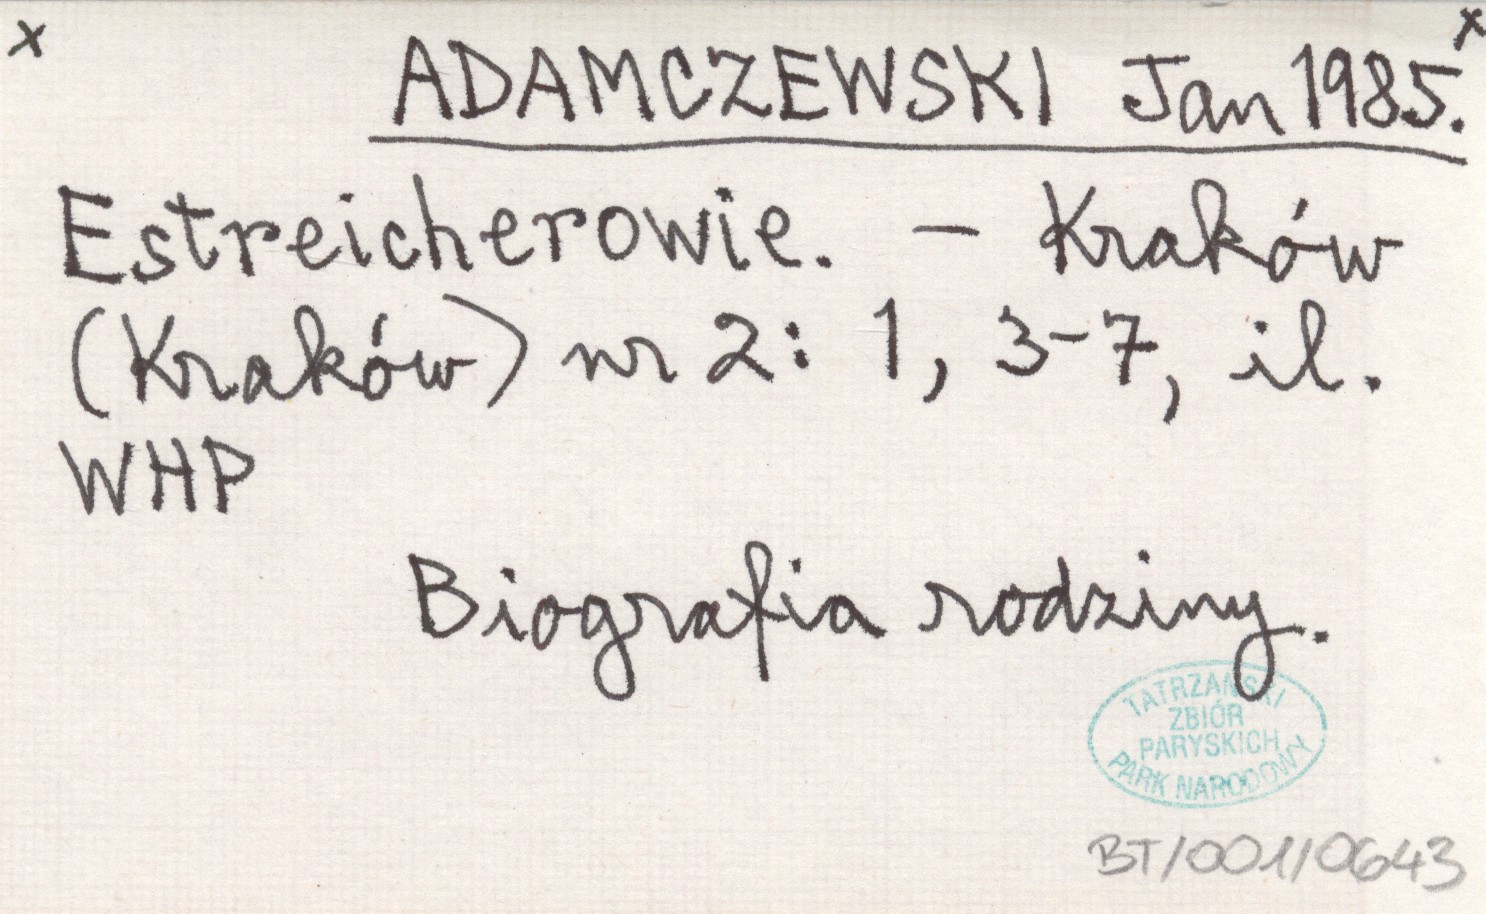 x x
ADAMCZEWSKI Jan 1985.
Estreicherowie. - Kraków
(Kraków) nr 2: 1, 3-7, il.
WHP
Biografia rodziny.
TATRZAŃSKI
ZBIÓR
PARYSKICH
PARK NARODOWY
BT/001/0643